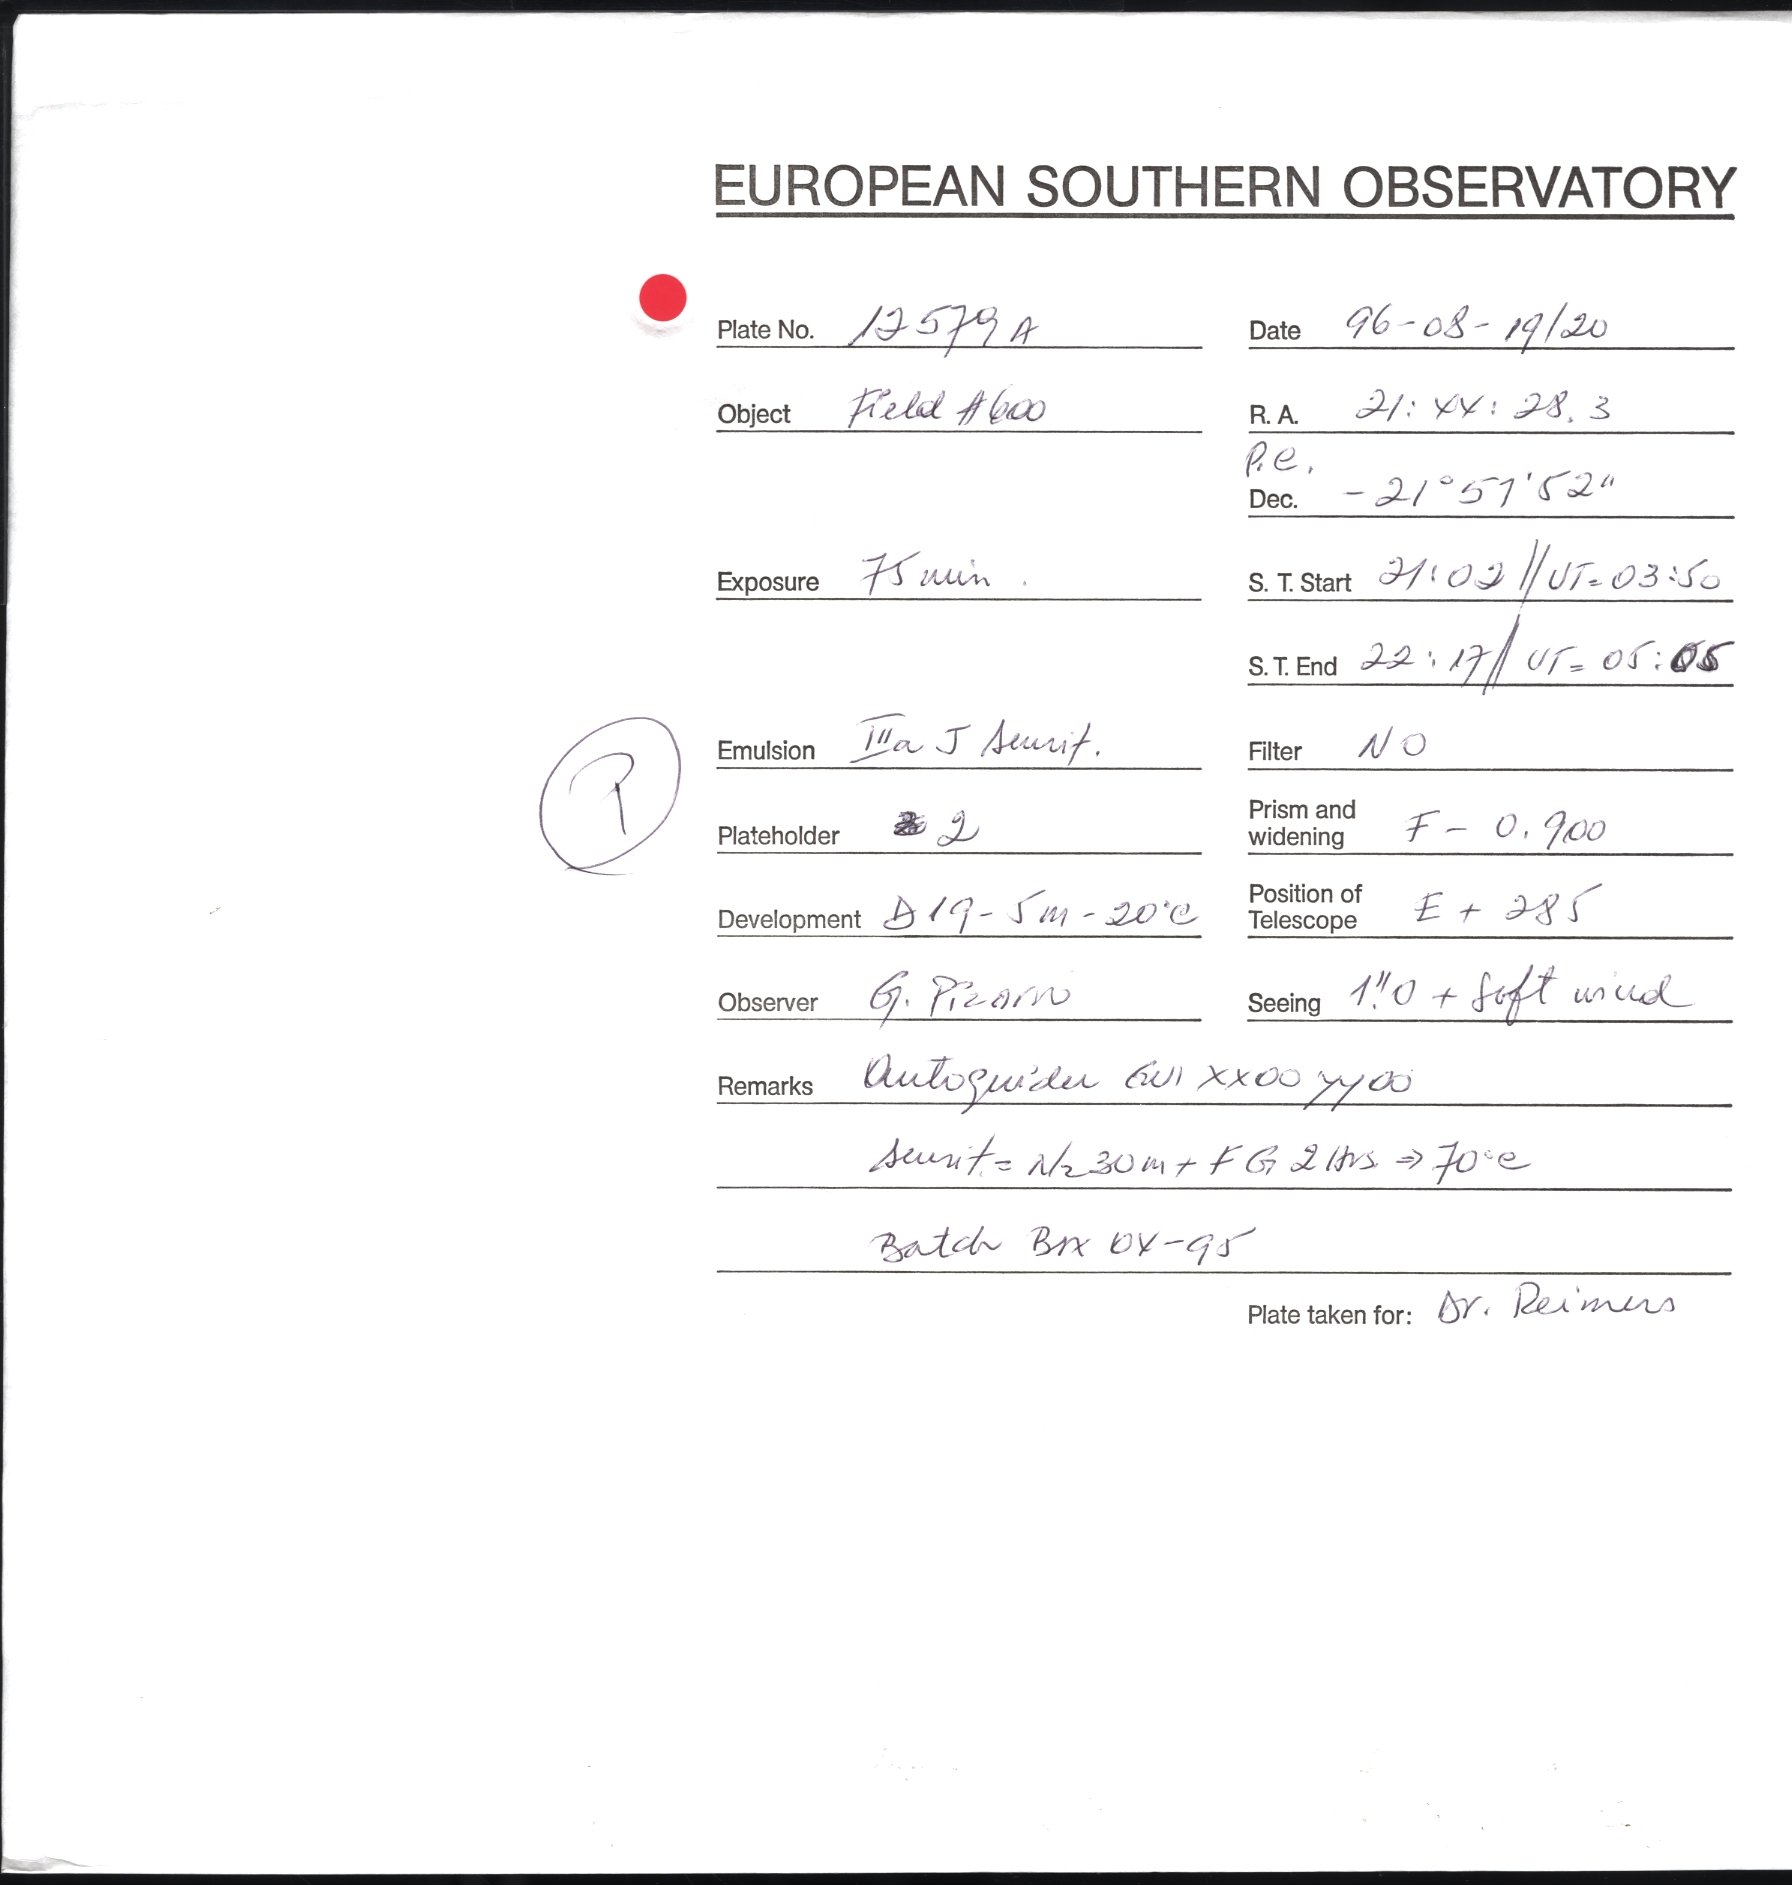 EUROPEAN SOUTHERN OBSERVATORY
Plate No. 12579 A Date 96-08-19/20
Object Field #600 R. A. 21: 44: 28. 3
P.C.
Dec. -21°57'52"
Exposure 75 min. S. T. Start 21:02 // UT= 03:50
S. T. End 22:17 // UT= 05:05
Emulsion IIIa J Sensit. Filter NO
Plateholder 2 Prism and widening F - 0.900
Development D19 - 5m - 20°C Position of Telescope E + 285
Observer G. Pizarro Seeing 1."0 + Soft wind
Remarks Autoguider XX00 YY00
Sensit. = N2 30m + FG 2 Hrs. ⇒ 70°C
Batch Box 04-95
Plate taken for: Dr. Reimers